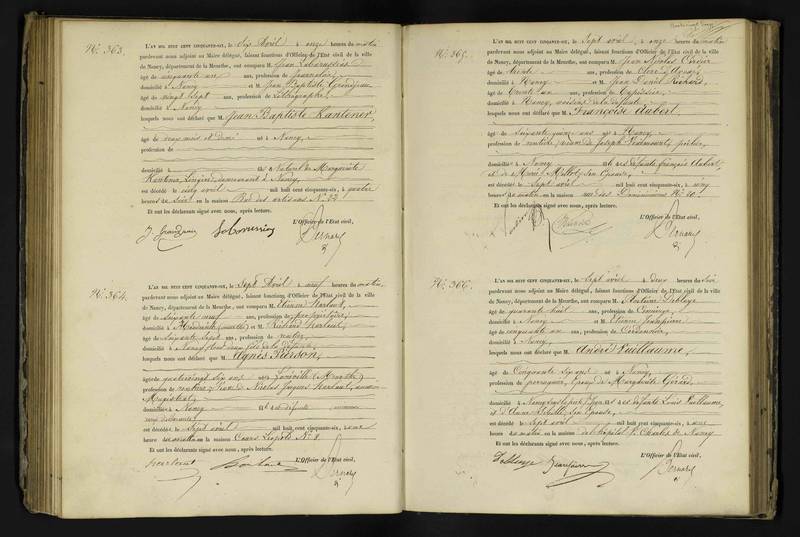 No. 363.
L'AN MIL HUIT CENT CINQUANTE-SIX, le Six Avril à onze heures du matin
pardevant nous adjoint au Maire délégué, faisant fonctions d'Officier de l'Etat civil de la ville
de Nancy, département de la Meurthe, ont comparu M. Jean
âgé de cinquante un ans, profession de journalier,
domicilié à Nancy et M. Jean Baptiste Grandjean
âgé de vingt sept ans, profession de Lithographe,
domicilié à Nancy
lesquels nous ont déclaré que M. Jean Baptiste Kantener,
âgé de trois mois et demi né à Nancy,
profession de
domicilié à fils Naturel de Marguerite
Kantener, Lingère, demeurant à Nancy,
est décédé le cinq avril mil huit cent cinquante-six, à quatre
heures du soir en la maison Rue des artisans No. 33
Et ont les déclarants signé avec nous, après lecture.
L'Officier de l'Etat civil,
J. Grandjean Bernard
No. 364.
L'AN MIL HUIT CENT CINQUANTE-SIX, le Sept Avril à neuf heures du matin,
pardevant nous adjoint au Maire délégué, faisant fonctions d'Officier de l'Etat civil de la ville
de Nancy, département de la Meurthe, ont comparu M. Etienne
âgé de soixante neuf ans, profession de propriétaire,
domicilié à (Meurthe) et M.
âgé de soixante sept ans, profession de
domicilié à Nancy, tous deux fils de la défunte
lesquels nous ont déclaré que M. Agnès Pierson,
âgée de quatrevingt six ans née à Lunéville (Meurthe)
profession de rentière, Veuve de Nicolas Jacques
Magistrat,
domiciliée à Nancy
est décédée le Sept avril mil huit cent cinquante-six, à une
heure du matin en la maison Cours Léopold No. 8.
Et ont les déclarants signé avec nous, après lecture.
L'Officier de l'Etat civil,
Bernard
No. 365.
L'AN MIL HUIT CENT CINQUANTE-SIX, le Sept avril à onze heures du matin
pardevant nous adjoint au Maire délégué, faisant fonctions d'Officier de l'Etat civil de la ville
de Nancy, département de la Meurthe, ont comparu M. Jean Nicolas Cordier
âgé de trente ans, profession de Clerc d'avoué,
domicilié à Nancy et M. Jean Louis Richard,
âgé de trente un ans, profession de Tapissier,
domicilié à Nancy, voisins de la défunte
lesquels nous ont déclaré que M. Françoise Aubert,
âgée de soixante quinze ans née à Nancy
profession de rentière, veuve de Joseph
domiciliée à Nancy fille des défunts françois Aubert,
et de Marie Millot, son épouse,
est décédée le Sept avril mil huit cent cinquante-six, à cinq
heures du matin en la maison rue des Dominicains No. 40.
Et ont les déclarants signé avec nous, après lecture.
L'Officier de l'Etat civil,
Richard Bernard
No. 366.
L'AN MIL HUIT CENT CINQUANTE-SIX, le Sept avril à deux heures du soir
pardevant nous adjoint au Maire délégué, faisant fonctions d'Officier de l'Etat civil de la ville
de Nancy, département de la Meurthe, ont comparu M. Antoine Deblaye
âgé de quarante huit ans, profession de
domicilié à Nancy et M. Etienne
âgé de cinquante six ans, profession de Cordonnier,
domicilié à Nancy,
lesquels nous ont déclaré que M. André Puillaume,
âgé de Cinquante six ans né à Nancy,
profession de perruquier, époux de Marguerite Gérard,
domicilié à Nancy, fils des défunts Louis Puillaume,
et d'Anne son épouse,
est décédé le Sept avril mil huit cent cinquante-six, à une
heure du matin en la maison de l'hôpital St. Charles de Nancy
Et ont les déclarants signé avec nous, après lecture.
L'Officier de l'Etat civil,
Deblaye Bernard